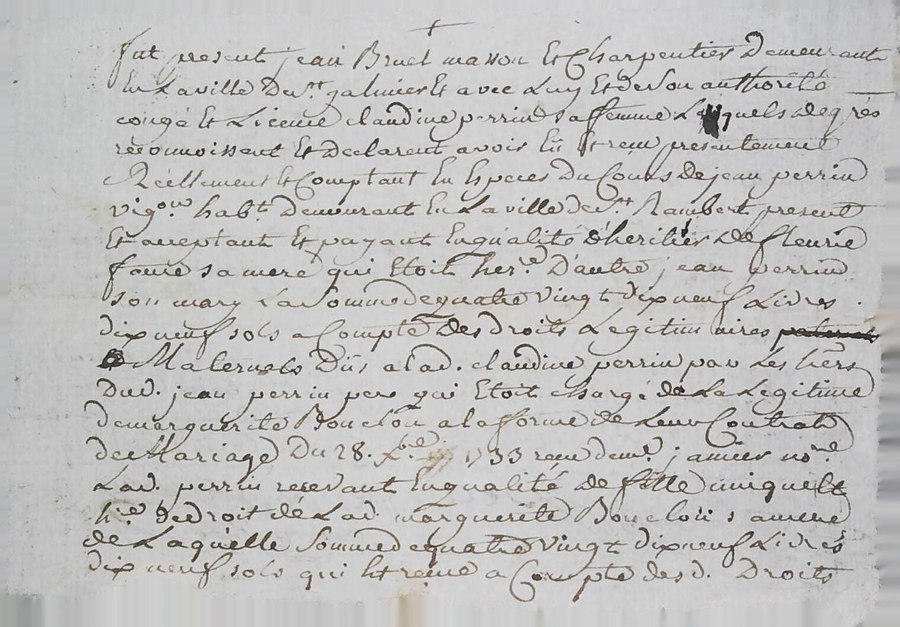 fut present jean Bruel masson Et Charpentier demeurant
En La ville de st galmier Et avec Luy Et de son authorité
congé Et Licence claudine perrin sa femme Lesquels de grés
reconnoissent Et declarent avoir Eu Et receu presentement
Reellement Et Comptant En Especes du Cours de jean perrin
vigon habt. demeurant En La ville de st Rambert present
Et acceptant Et payant En qualité d'heritier de fleurie
faure sa mere qui Etoit her.e D'autre jean perrin
son mary La somme de quatre vingt dix neuf Livres
dix neuf sols a Compte des droits Legitimaires
Maternels Dûs a lad. claudine perrin par Les hers
Dud. jean perrin pere qui Etoit chargé de La Legitime
de marguerite Bouclon a la forme de Leur Contrat
de Mariage Du 28. 1733 receu de me. janvier nore
Lad. perrin recevant En qualité de fille unique Et
h.e de droit de Lad. marguerite Bouclon sa mere
de Laquelle somme de quatre vingt dix neuf Livres
dix neuf sols qui Est receue a Compte desd. Droits